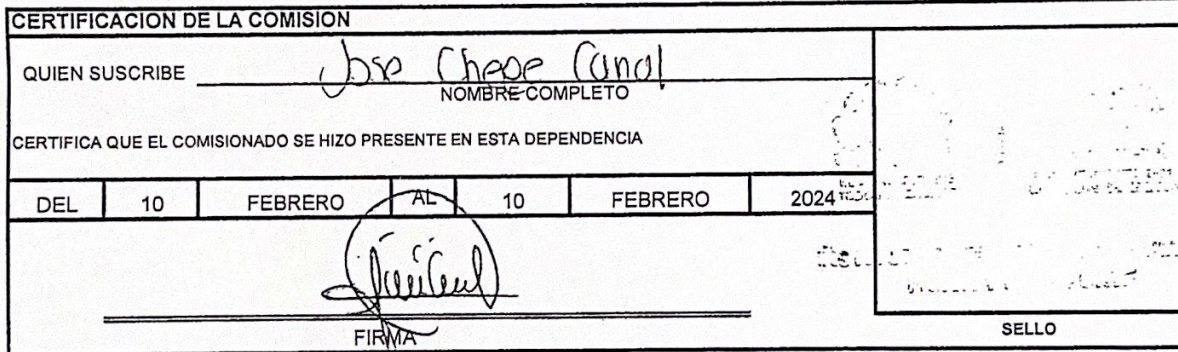 CERTIFICACION DE LA COMISION
QUIEN SUSCRIBE Jose Chepe Canal
NOMBRE COMPLETO
CERTIFICA QUE EL COMISIONADO SE HIZO PRESENTE EN ESTA DEPENDENCIA
DEL 10 FEBRERO AL 10 FEBRERO 2024
FIRMA
SELLO